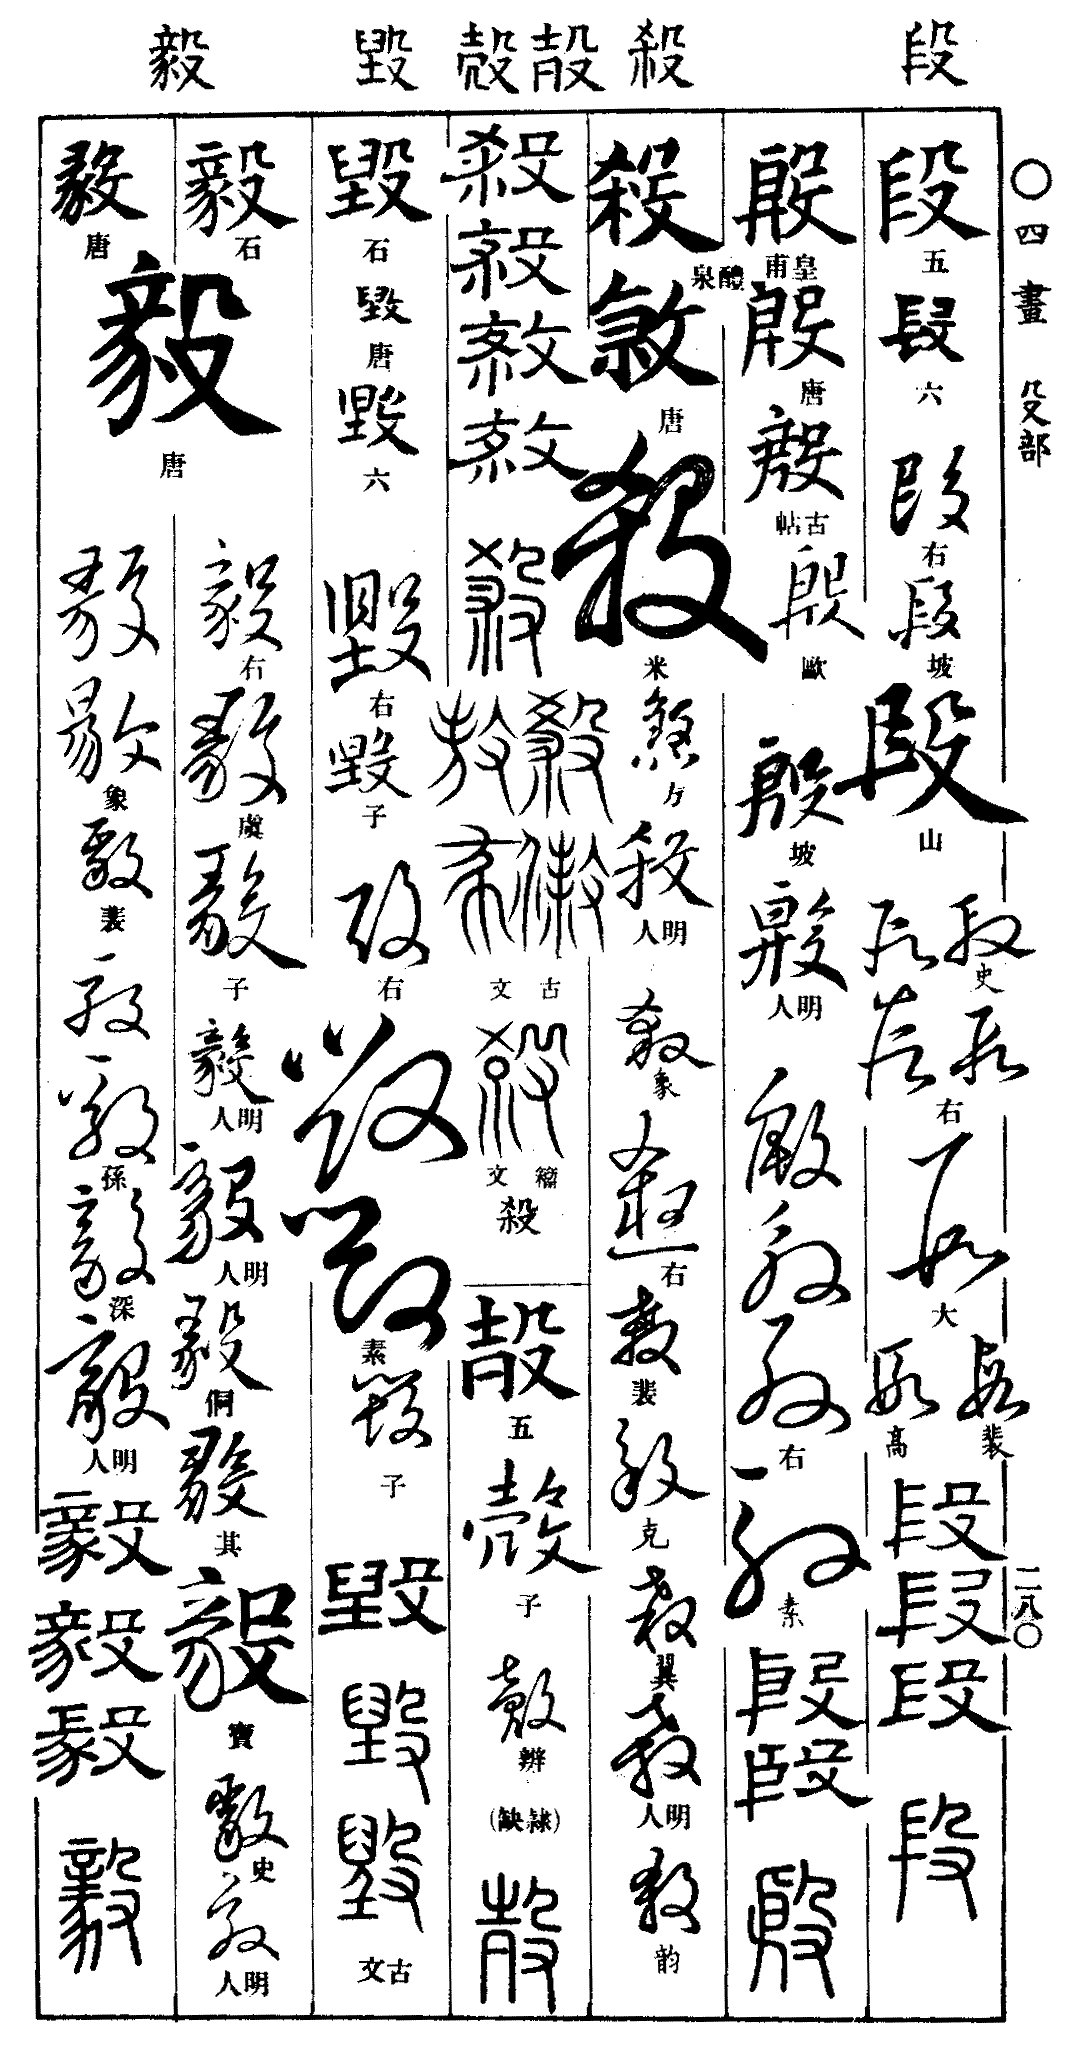 段 殺 㱿 殼 毀 毅
〇四畫 殳部
二八〇
段 五
段 六
段 右
段 坡
段 山
段 段 史
段 段 右
段 大
段 裴 段 高
段
段
段
段
殷 皇甫
殷 唐
殷 古帖
殷 歐
殷 坡
殷 明人
殷
殷
殷 右
殷 素
殷
殷
殷
殺 醴泉
殺 唐
殺 米
殺 方
殺 明人
殺 象
殺 右
殺 裴
殺 克
殺 翼
殺 明人
殺 韵
殺
殺
殺
殺
殺
殺 殺
殺 殺
古文
殺
籀文
殺
㱿 五
殼 子
殼 辨
(隸缺)
㱿
毀 石
毀 唐
毀 六
毀 右
毀 子
毀 右
毀
毀 素
毀 子
毀
毀
毀
古文
毅 石
毅 唐
毅 右
毅 虞
毅 子
毅 明人
毅 明人
毅 侗
毅 其
毅 寶
毅 史
毅 明人
毅 唐
毅
毅 象
毅 裴
毅
毅 孫
毅 深
毅 明人
毅
毅
毅
毅